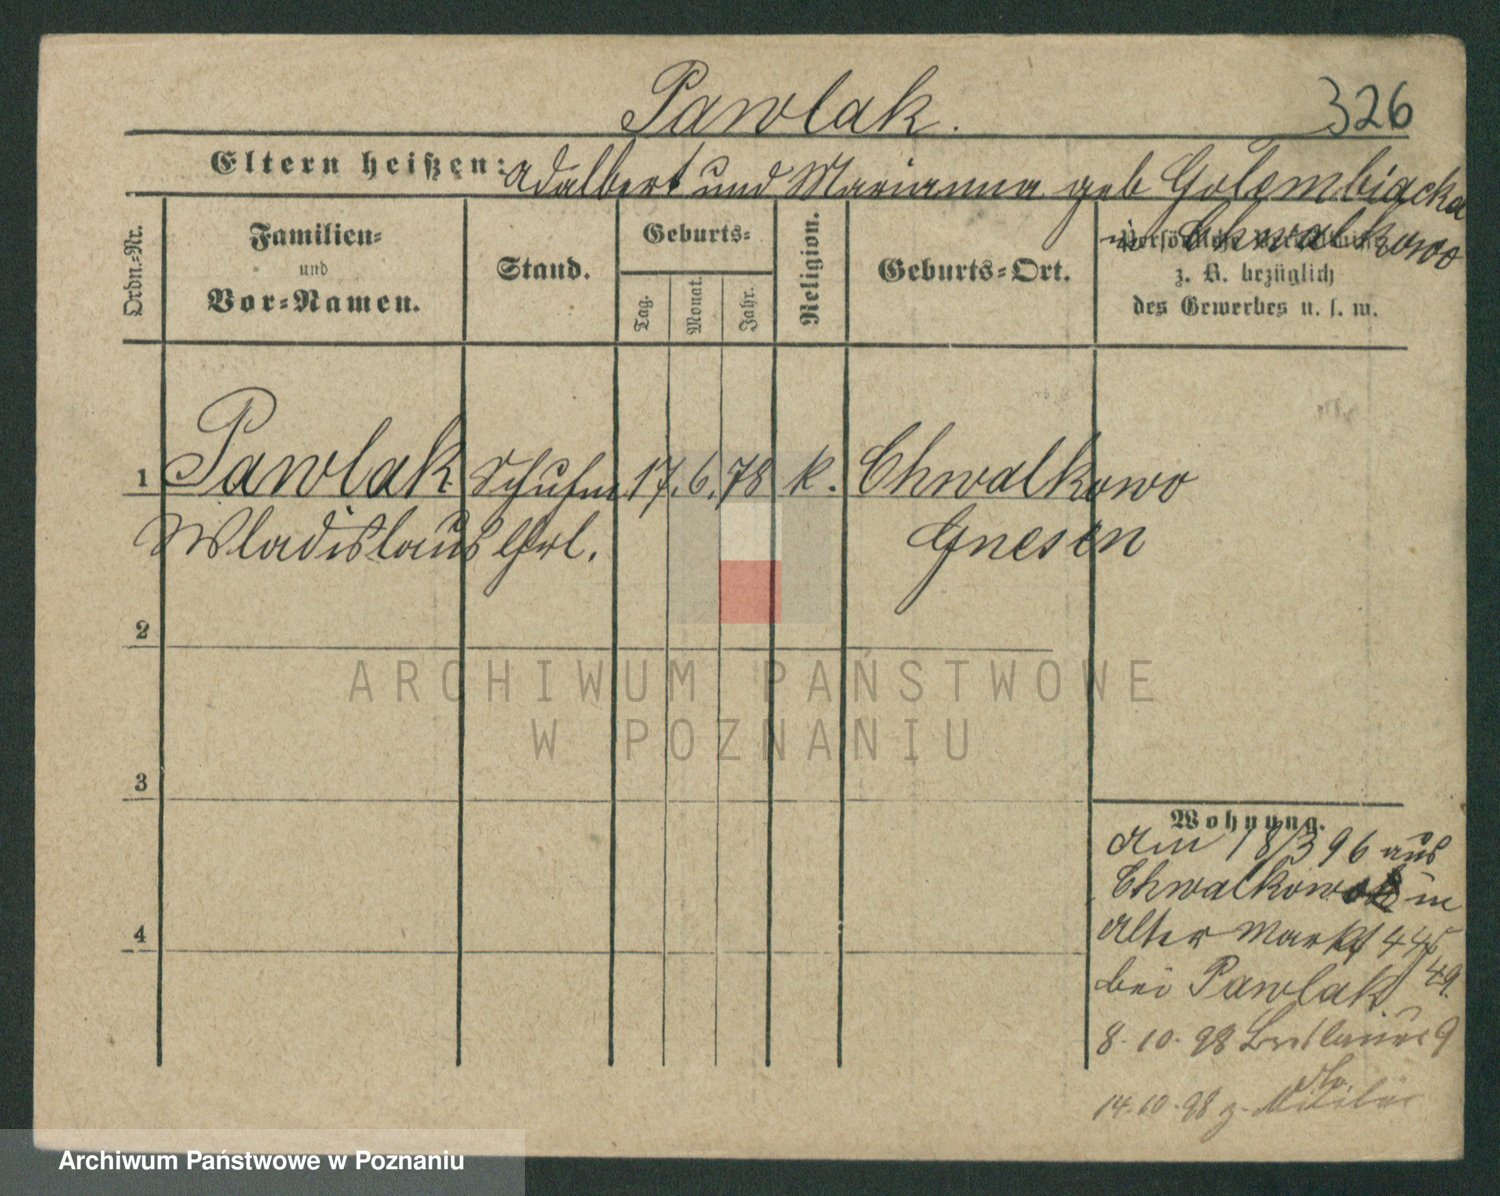 Pawlak. 326
Eltern heißen: Adalbert und Marianna geb Golembiacka
in Chwalkowo
Ordn.-Nr.
Familien-
und
Vor-Namen.
Stand.
Geburts-
Tag.
Monat.
Jahr.
Religion.
Geburts-Ort.
z. B. bezüglich
des Gewerbes u. s. w.
1 Pawlak Schuhm 17. 6. 78 k. Chwalkowo
Wladislaus Gnesen
2
3
4
Wohnung.
Am 18/3 96 aus
Chwalkowo in
Alter Markt
bei Pawlak 49.
8. 10. 98 9
14. 10. 98 z. Militär
ARCHIWUM PAŃSTWOWE
W POZNANIU
Archiwum Państwowe w Poznaniu